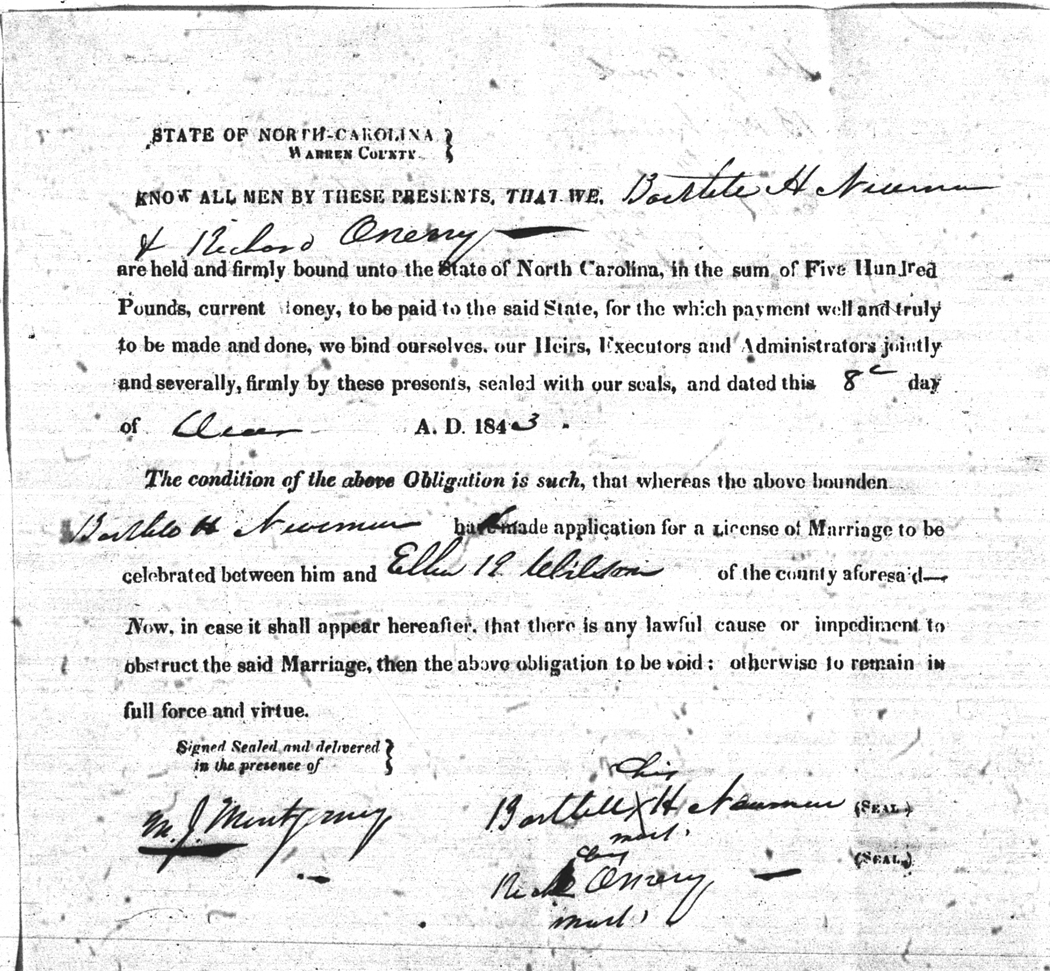 STATE OF NORTH-CAROLINA }
WARREN COUNTY. }
KNOW ALL MEN BY THESE PRESENTS, THAT WE, H Newman
& Richard
are held and firmly bound unto the State of North Carolina, in the sum of Five Hundred
Pounds, current Money, to be paid to the said State, for the which payment well and truly
to be made and done, we bind ourselves, our Heirs, Executors and Administrators jointly
and severally, firmly by these presents, sealed with our seals, and dated this 8 day
of A. D. 1843 .
The condition of the above Obligation is such, that whereas the above bounden
H Newman made application for a License of Marriage to be
celebrated between him and Ellen of the county aforesaid—
Now, in case it shall appear hereafter, that there is any lawful cause or impediment to
obstruct the said Marriage, then the above obligation to be void; otherwise to remain in
full force and virtue.
Signed Sealed and delivered }
in the presence of }
his
Bartlett X H Newman (SEAL)
M. J. Montgomery
mark
his
(SEAL.)
mark